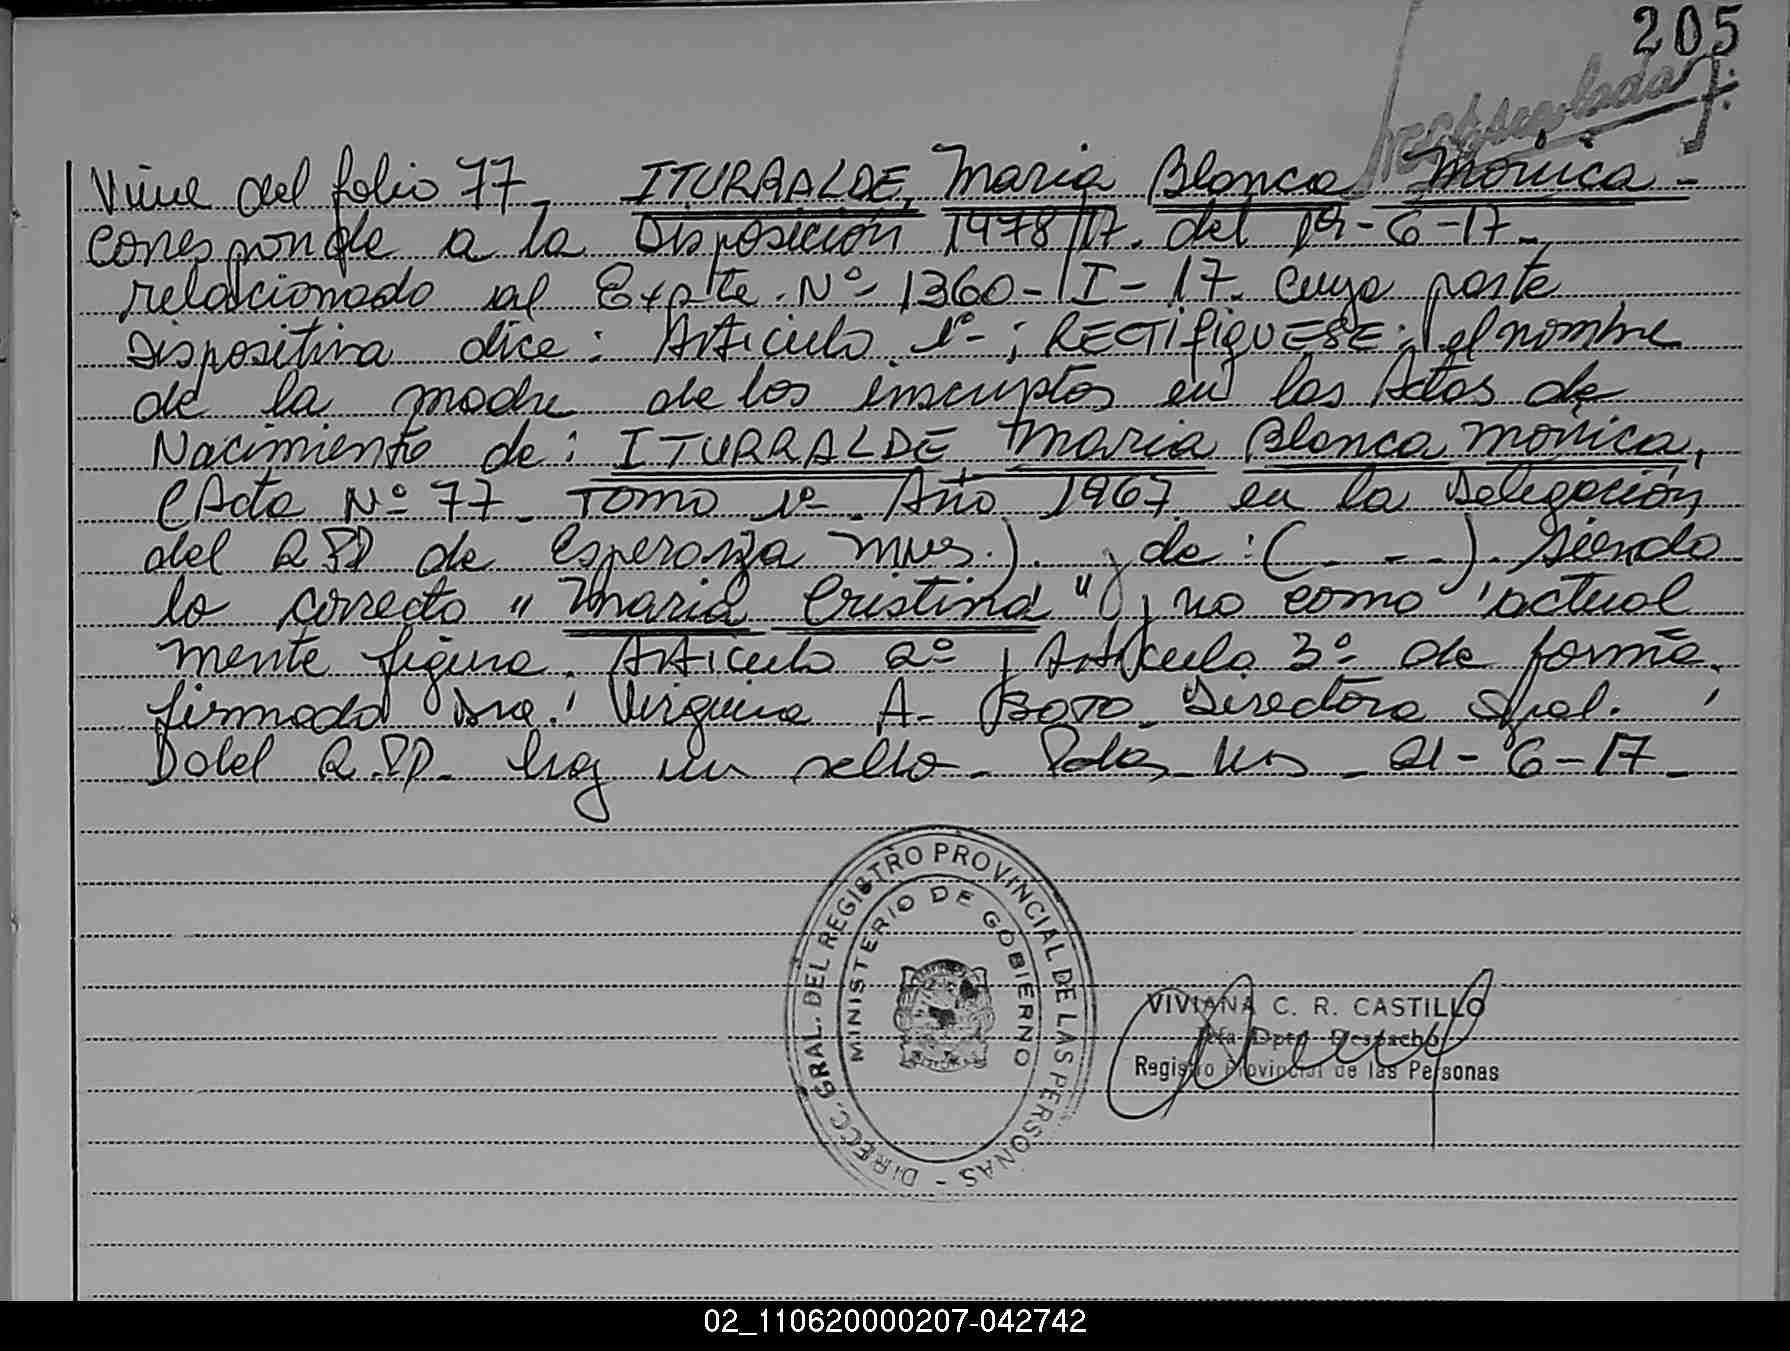 205
Viene del folio 77_ ITURRALDE, Maria Blanca Mónica -
corresponde a la Disposición 1978/17. del 19-6-17_
relacionado al Expte. Nº 1360-I-17. cuya parte
Dispositiva dice: Articulo 1º-; RECTIFIQUESE: el nombre
de la madre de los inscriptos en las Actas de
Nacimiento de: ITURRALDE, Maria Blanca Monica,
(Acta Nº 77_ Tomo 1º_ Año 1967 en la Delegación
del R.P.P de Esperanza Mnes.). y de: (_ _ _). Siendo
lo correcto "Maria Cristina" y no como actual
mente figura. Articulo 2º y Articulo 3º de forma.
firmado Dra. Virginia A. Boto_ Directora Gral.
D del R.P.P_ hay un sello_ Pdas_ Mns_ 21-6-17_
DIRECC. GRAL. DEL REGISTRO PROVINCIAL DE LAS PERSONAS -
MINISTERIO DE GOBIERNO
VIVIANA C. R. CASTILLO
Jefa Dpto Despacho
Registro Provincial de las Personas
02_110620000207-042742